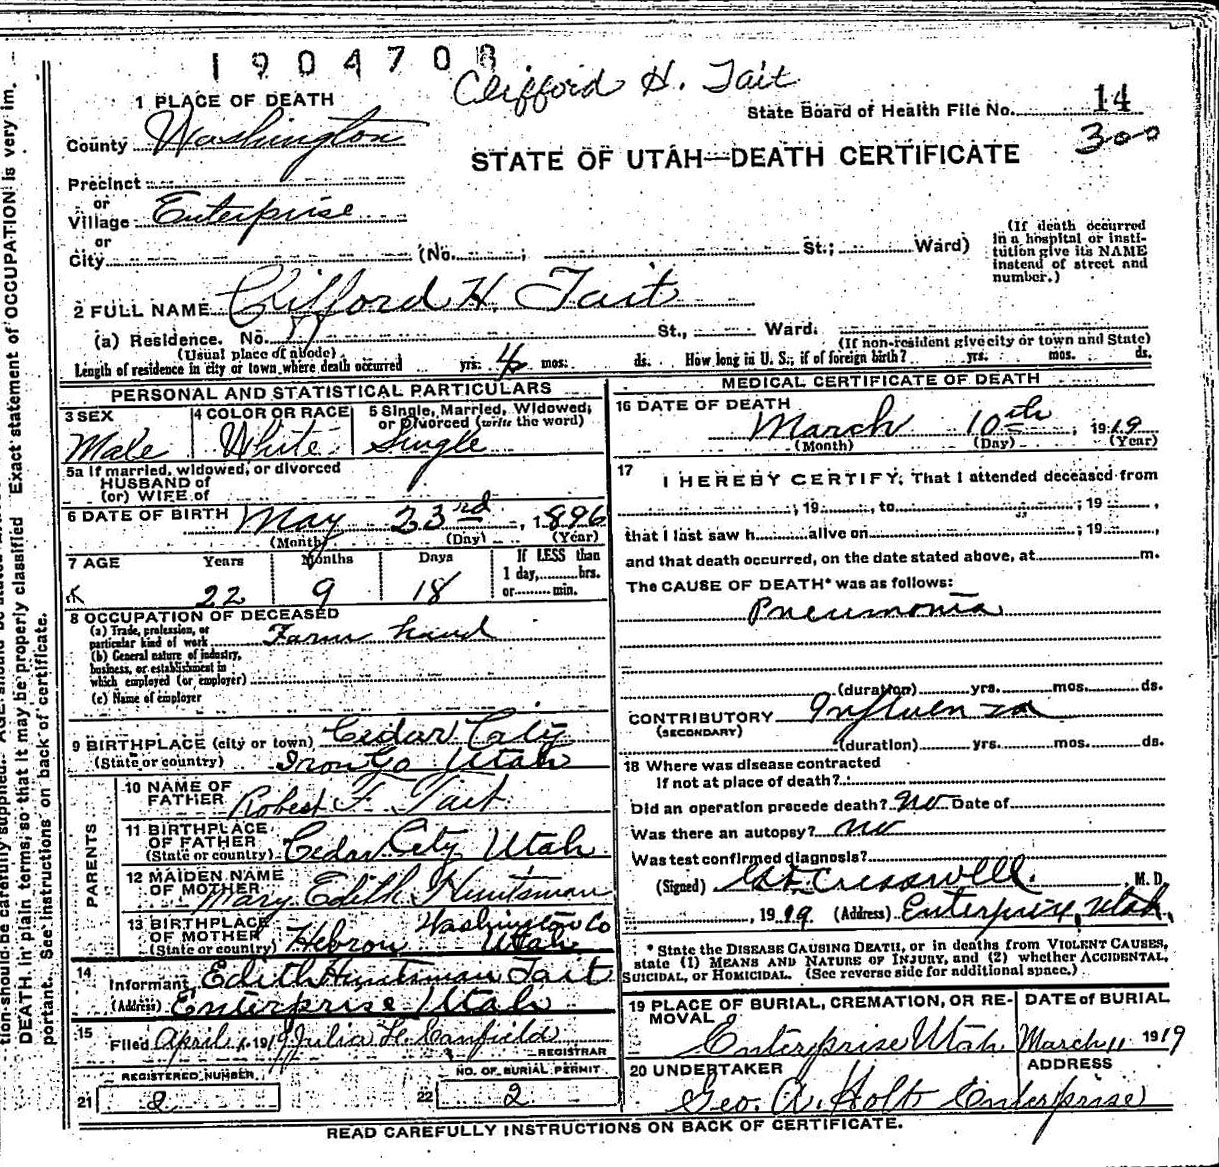 1904708
Clifford H. Tait
State Board of Health File No. 14
300
STATE OF UTAH—DEATH CERTIFICATE
1 PLACE OF DEATH
County Washington
Precinct
or
Village Enterprise
or
City (No. ; St.; Ward)
(If death occurred in a hospital or institution give its NAME instead of street and number.)
2 FULL NAME Clifford H. Tait
(a) Residence. No. St., Ward.
(Usual place of abode) (If non-resident give city or town and State)
Length of residence in city or town where death occurred yrs. mos. ds. How long in U. S., if of foreign birth? yrs. mos. ds.
PERSONAL AND STATISTICAL PARTICULARS
3 SEX Male
4 COLOR OR RACE White
5 Single, Married, Widowed, or Divorced (write the word) Single
5a If married, widowed, or divorced
HUSBAND of
(or) WIFE of
6 DATE OF BIRTH May 23rd, 1896
(Month) (Day) (Year)
7 AGE Years 22 Months 9 Days 18
If LESS than
1 day, hrs.
or min.
8 OCCUPATION OF DECEASED
(a) Trade, profession, or particular kind of work Farm hand
(b) General nature of industry, business, or establishment in which employed (or employer)
(c) Name of employer
9 BIRTHPLACE (city or town) Cedar City
(State or country) Iron Co Utah
PARENTS
10 NAME OF FATHER Robert F. Tait
11 BIRTHPLACE OF FATHER (State or country) Cedar City Utah
12 MAIDEN NAME OF MOTHER Mary Edith Huntsman
13 BIRTHPLACE OF MOTHER (State or country) Hebron Washington Co Utah
14 Informant Edith Huntsman Tait
(Address) Enterprise Utah
15 Filed April 1919 Julia H. Canfield
REGISTRAR
REGISTERED NUMBER
21 2
NO. OF BURIAL PERMIT
22 2
MEDICAL CERTIFICATE OF DEATH
16 DATE OF DEATH
March 10th, 1919
(Month) (Day) (Year)
17 I HEREBY CERTIFY, That I attended deceased from
, 19 , to ; 19 ,
that I last saw h alive on ; 19 ,
and that death occurred, on the date stated above, at m.
The CAUSE OF DEATH* was as follows:
Pneumonia
(duration) yrs. mos. ds.
CONTRIBUTORY Influenza
(SECONDARY)
(duration) yrs. mos. ds.
18 Where was disease contracted
If not at place of death?
Did an operation precede death? no Date of
Was there an autopsy? no
Was test confirmed diagnosis?
(Signed) Cresswell. M. D.
, 1919 (Address) Enterprise, Utah.
* State the DISEASE CAUSING DEATH, or in deaths from VIOLENT CAUSES,
state (1) MEANS AND NATURE OF INJURY, and (2) whether ACCIDENTAL,
SUICIDAL, OR HOMICIDAL. (See reverse side for additional space.)
19 PLACE OF BURIAL, CREMATION, OR REMOVAL
Enterprise Utah
DATE of BURIAL
March 11 1919
20 UNDERTAKER
Geo. A. Holt
ADDRESS
Enterprise
READ CAREFULLY INSTRUCTIONS ON BACK OF CERTIFICATE.
DEATH in plain terms, so that it may be properly classified. Exact statement of OCCUPATION is very im-
portant. See instructions on back of certificate.